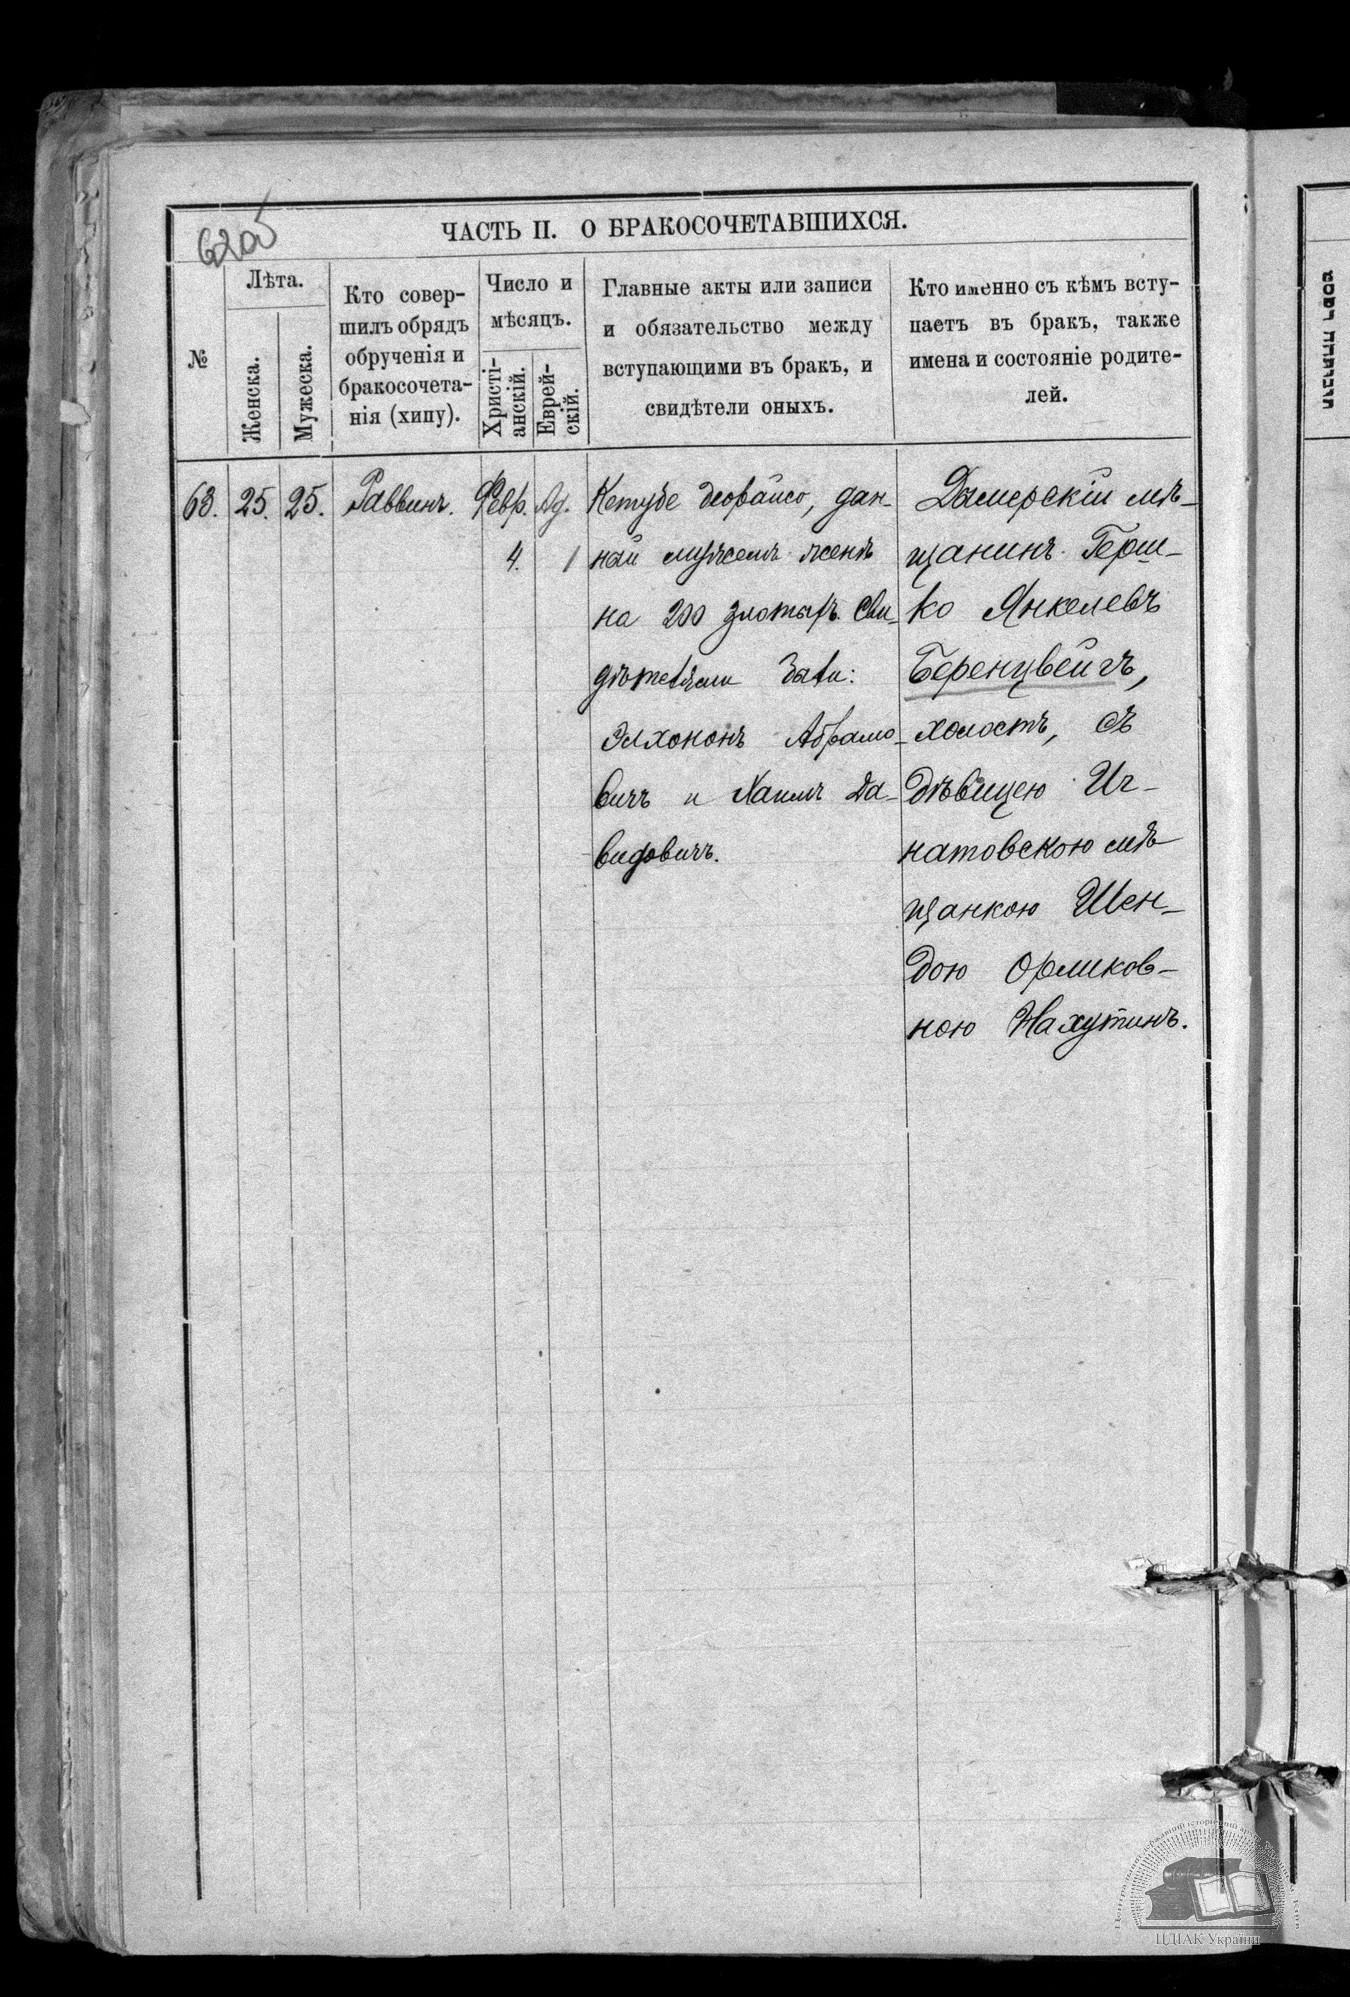 620б
ЧАСТЬ II. О БРАКОСОЧЕТАВШИХСЯ.
№
Лѣта.
Женска.
Мужеска.
Кто совер-
шилъ обрядъ
обрученія и
бракосочета-
нія (хипу).
Число и
мѣсяцъ.
Христі-
анскій.
Еврей-
скій.
Главные акты или записи
и обязательство между
вступающими въ бракъ, и
свидѣтели оныхъ.
Кто именно съ кѣмъ всту-
паетъ въ бракъ, также
имена и состояніе родите-
лей.
63.
25.
25.
Раввинъ.
Февр.
4.
Ад.
1
Кетубе деорайсо, дан-
най мужемъ женѣ
на 200 злотыхъ. Сви-
дѣтелями были:
Элхононъ Абрамо-
вичъ и Хаимъ Да-
видовичъ.
Дымерскій мѣ-
щанинъ Герш-
ко Янкелевъ
Беренцвейгъ,
холостъ, съ
дѣвицею Иг-
натовскою мѣ-
щанкою Шен-
дою Орликов-
ною Нахутинъ.
ЦДІАК України